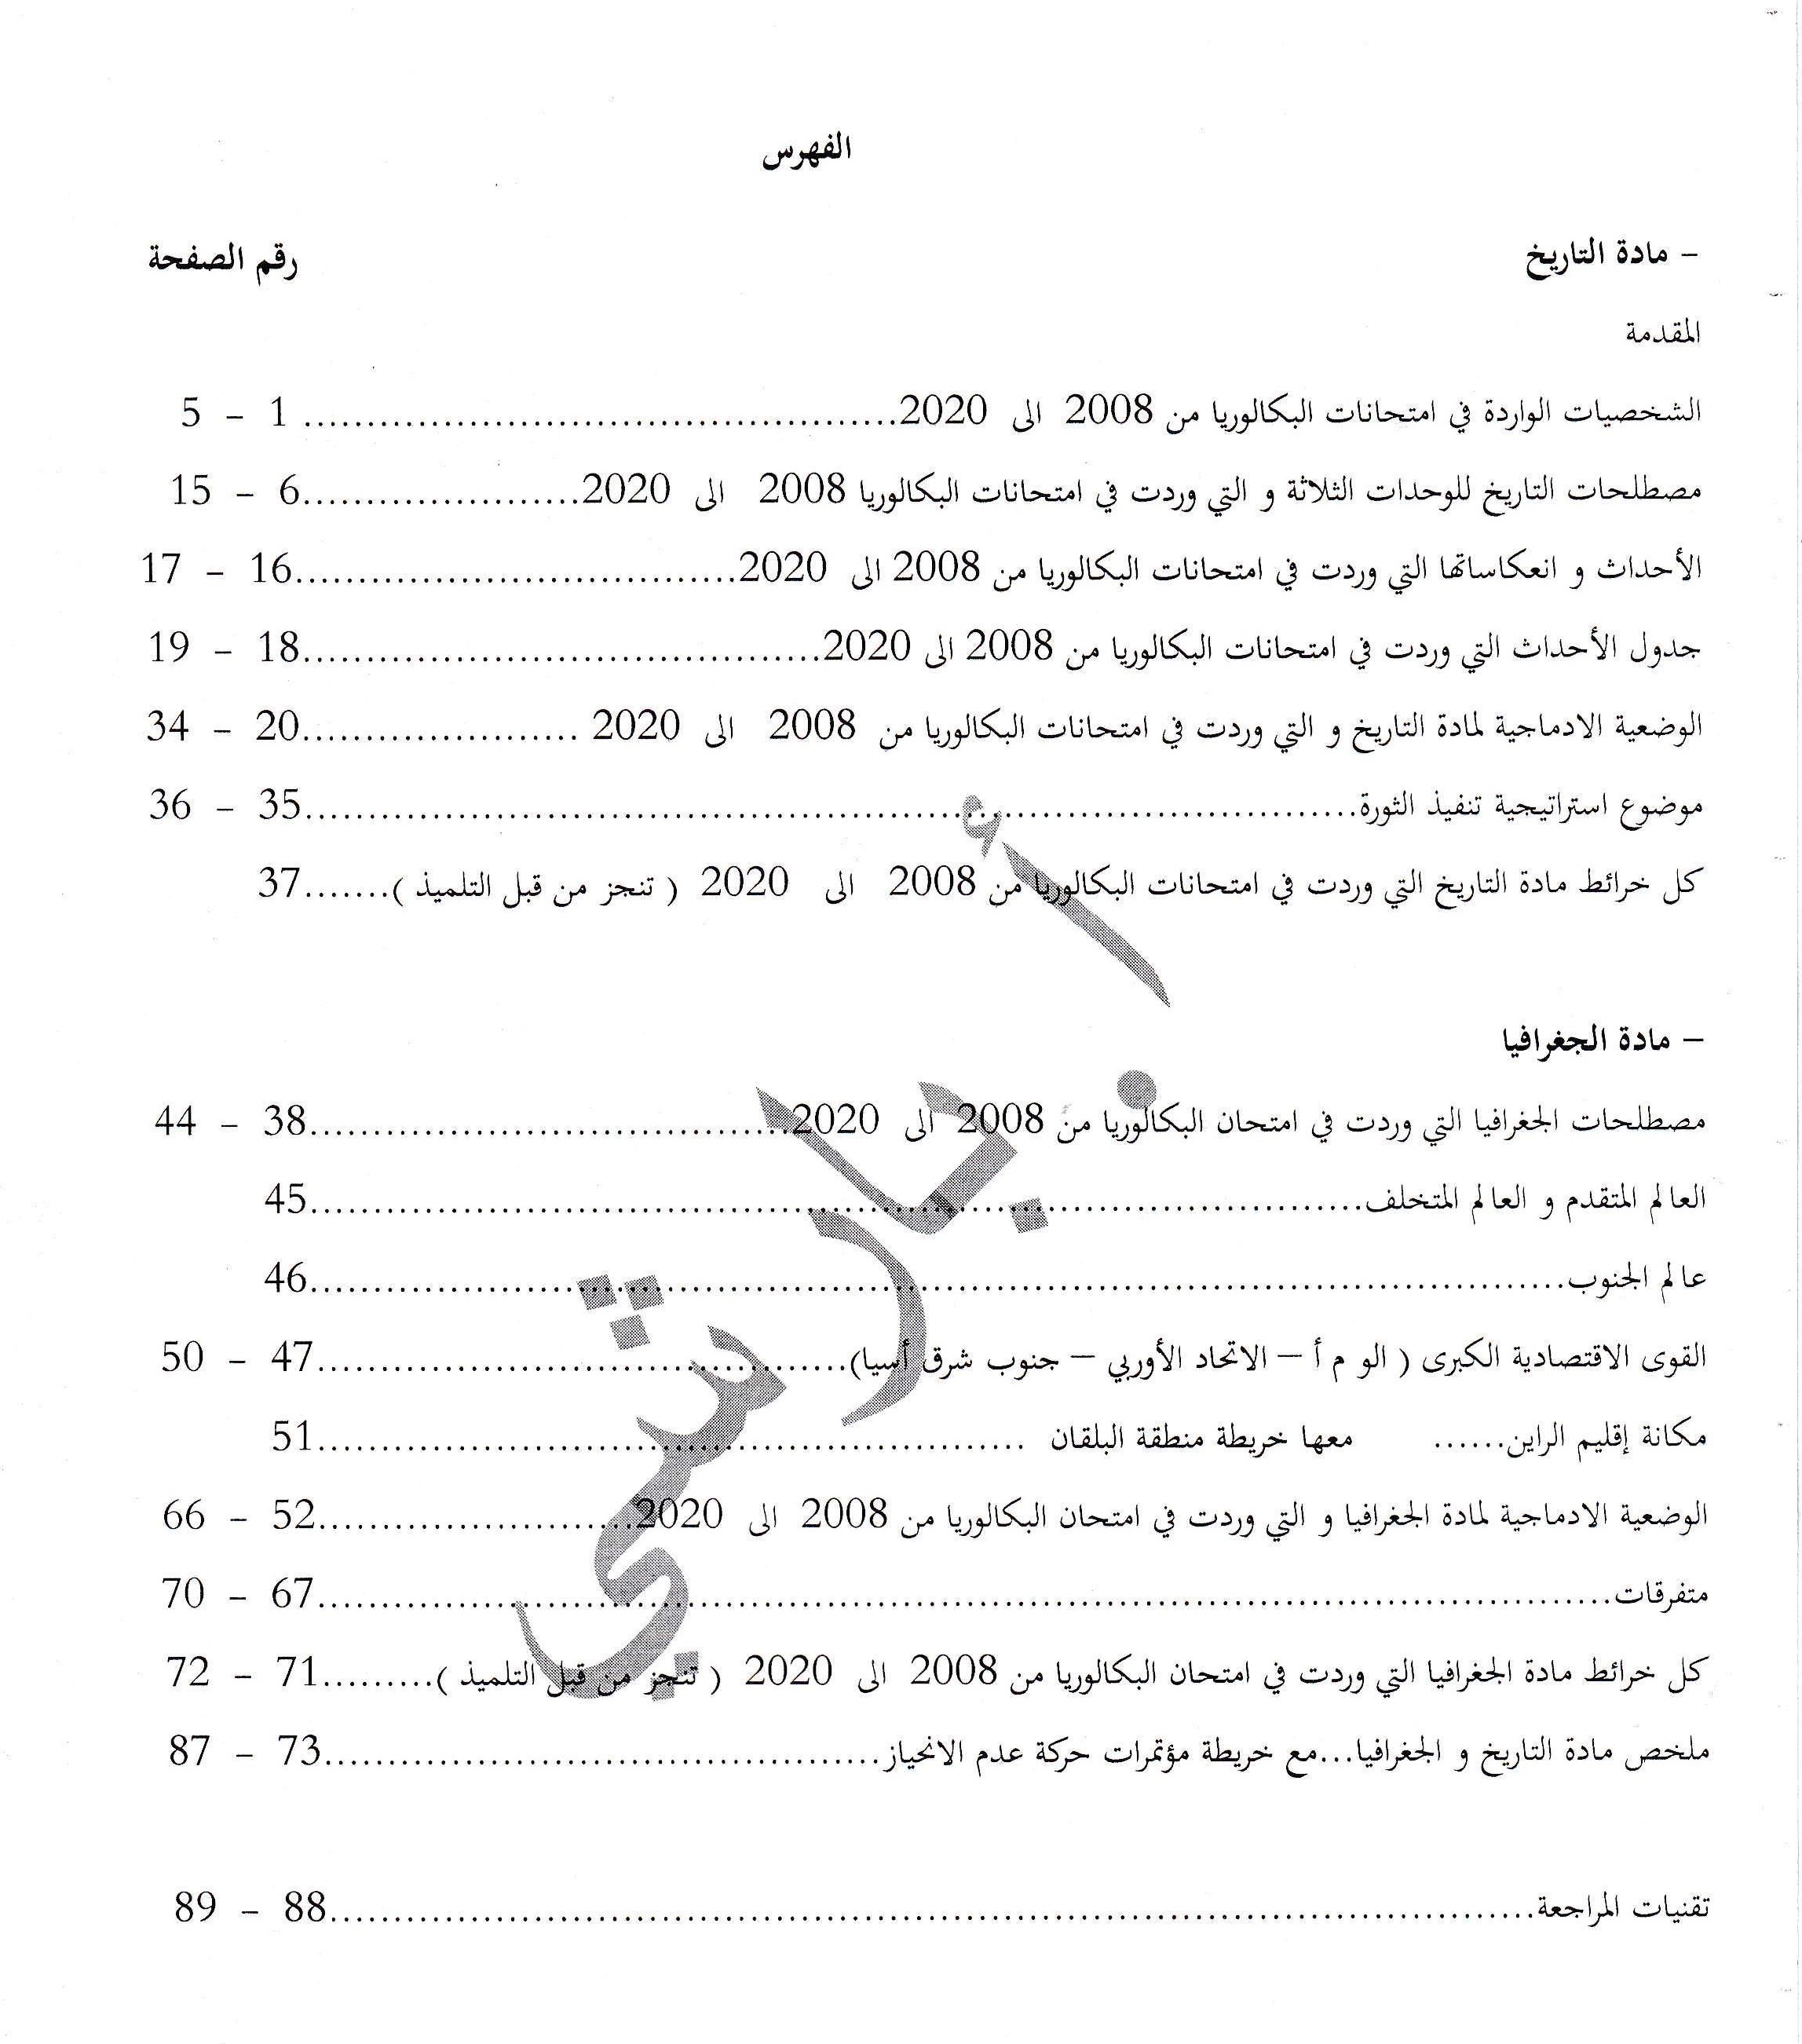 الفهرس
– مادة التاريخ رقم الصفحة
المقدمة
الشخصيات الواردة في امتحانات البكالوريا من 2008 الى 2020............................................... 1 – 5
مصطلحات التاريخ للوحدات الثلاثة و التي وردت في امتحانات البكالوريا 2008 الى 2020......................6 – 15
الأحداث و انعكاساتها التي وردت في امتحانات البكالوريا من 2008 الى 2020...................................16 – 17
جدول الأحداث التي وردت في امتحانات البكالوريا من 2008 الى 2020.........................................18 – 19
الوضعية الادماجية لمادة التاريخ و التي وردت في امتحانات البكالوريا من 2008 الى 2020 ......................20 – 34
موضوع استراتيجية تنفيذ الثورة...................................................................................35 – 36
كل خرائط مادة التاريخ التي وردت في امتحانات البكالوريا من 2008 الى 2020 ( تنجز من قبل التلميذ ).......37
– مادة الجغرافيا
مصطلحات الجغرافيا التي وردت في امتحان البكالوريا من 2008 الى 2020......................................38 – 44
العالم المتقدم و العالم المتخلف...................................................................................45
عالم الجنوب...................................................................................................46
القوى الاقتصادية الكبرى ( الو م أ – الاتحاد الأوربي – جنوب شرق أسيا)..........................................47 – 50
مكانة إقليم الراين...... معها خريطة منطقة البلقان ........................................................51
الوضعية الادماجية لمادة الجغرافيا و التي وردت في امتحان البكالوريا من 2008 الى 2020.........................52 – 66
متفرقات......................................................................................................67 – 70
كل خرائط مادة الجغرافيا التي وردت في امتحان البكالوريا من 2008 الى 2020 ( تنجز من قبل التلميذ ).........71 – 72
ملخص مادة التاريخ و الجغرافيا...مع خريطة مؤتمرات حركة عدم الانحياز....................................................................73 – 87
تقنيات المراجعة...............................................................................................88 – 89